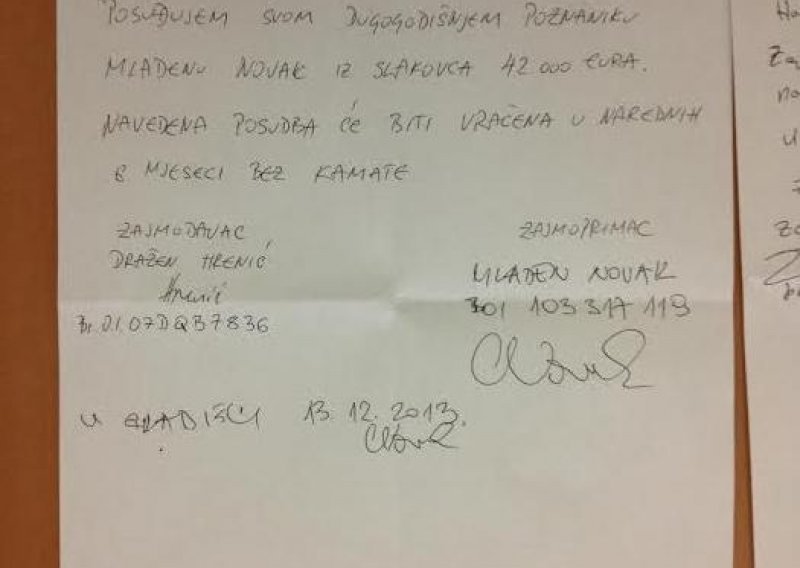 POSUĐUJEM SVOM DUGOGODIŠNJEM POZNANIKU
MLADENU NOVAK IZ SLAKOVCA 42 000 EURA.
NAVEDENA POSUDBA ĆE BITI VRAČENA U NAREDNIH
6 MJESECI BEZ KAMATE
ZAJMODAVAC
DRAŽEN HRENIĆ
Hrenić
Br.O.I. 07DQB7836
ZAJMOPRIMAC
MLADEN NOVAK
BOI 103 317 119
U GRADIŠCI 13. 12. 2013.